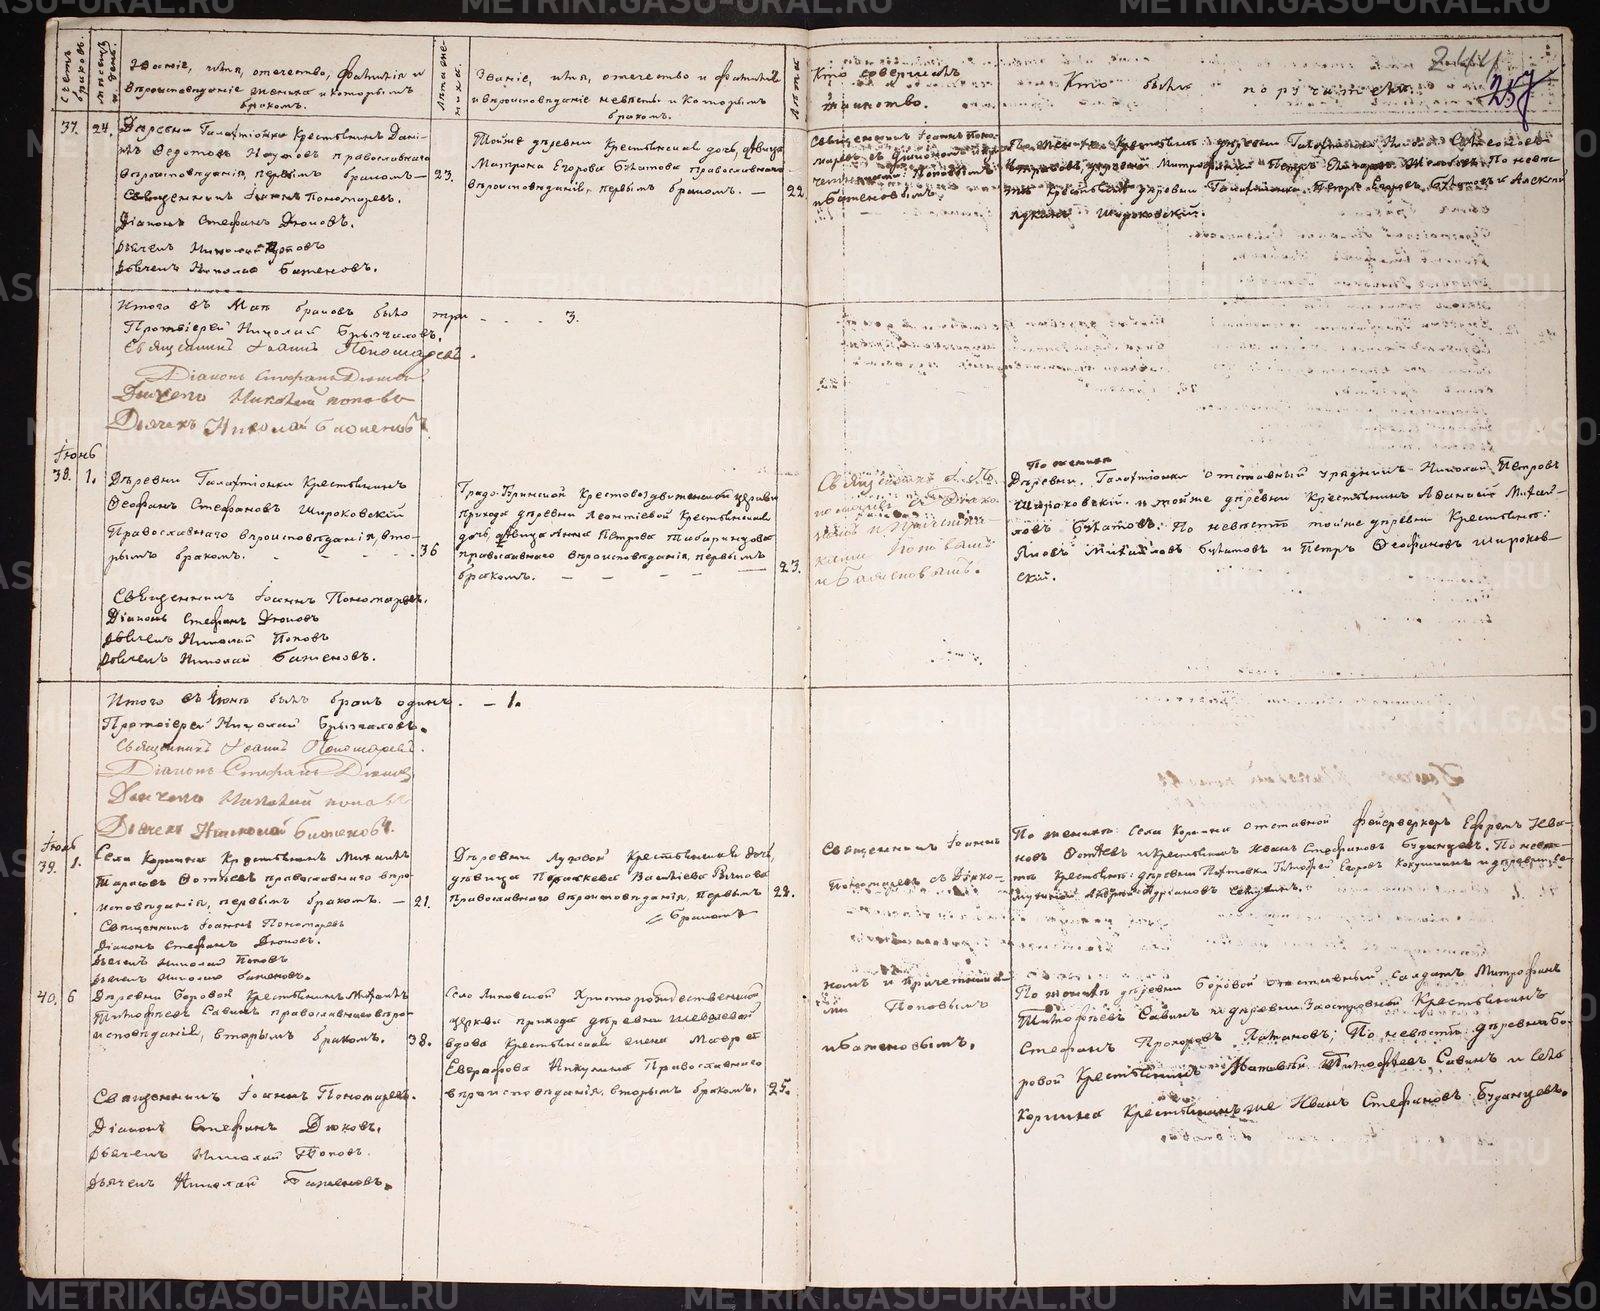 Счетъ браковъ.
Мѣсяцъ и день.
Званіе, имя, отечество, фамилія и
вѣроисповѣданіе жениха и которымъ
бракомъ.
Лѣта жениха.
Званіе, имя, отечество и фамилія
и вѣроисповѣданіе невѣсты и которымъ
бракомъ.
Лѣта
Кто совершалъ
таинство.
Кто были поручители.
244
257
37. 24.
Деревни Галактіонки Крестьянинъ Дані-
илъ Федотовъ Наумовъ православнаго
вѣроисповѣданія, первымъ бракомъ — 23.
Священникъ Іоаннъ Пономаревъ.
Діаконъ Стефанъ Дюковъ.
Дьячекъ Николай Поповъ
Дьячекъ Николай Баженовъ.
Тойже деревни Крестьянская дочь, дѣвица
Матрона Егорова Булатова православнаго
вѣроисповѣданія, первымъ бракомъ. — 22
Священникъ Іоаннъ Поно-
маревъ съ Діакономъ и при-
четниками: Поповымъ
и Баженовымъ.
По женихѣ Крестьяне: деревни Галактіонки
Петръ
По невѣс-
тѣ Крестьяне деревни Галактіонки Петръ Егоровъ Булатовъ и Алексѣй
Широковскій.
Итого въ Маѣ браковъ было три - - - 3.
Протоіерей Николай Брызгаловъ.
Священникъ Іоаннъ Пономаревъ.
Діаконъ Стефанъ Дюковъ.
Дьячекъ Николай Поповъ
Дьячекъ Николай Баженовъ.
Іюнь
38. 1.
Деревни Галактіонки Крестьянинъ
Феофанъ Стефановъ Широковскій
Православнаго вѣроисповѣданія, вто-
рымъ бракомъ. - - - - 36
Священникъ Іоаннъ Пономаревъ.
Діаконъ Стефанъ Дюковъ
Дьячекъ Николай Поповъ
Дьячекъ Николай Баженовъ.
Градо-Ирбитской Крестовоздвиженской церкви
прихода деревни Леонтіевой Крестьянская
дочь, дѣвица Анна Петрова
православнаго вѣроисповѣданія, первымъ
бракомъ. — — — — — 23.
Священникъ І. По-
номаревъ съ Діако-
номъ и Причетни-
ками Поповымъ
и Баженовымъ.
По женихѣ
Деревни Галактіонки отставный урядникъ Николай Петровъ
Широковскій и тойже деревни Крестьянинъ Аѳанасій Михай-
ловъ Булатовъ: По невѣстѣ тойже деревни Крестьяне:
Яковъ Михайловъ Булатовъ и Петръ Феофановъ Широков-
скій.
Итого въ Іюнѣ былъ бракъ одинъ. - 1.
Протоіерей Николай Брызгаловъ.
Священникъ Іоаннъ Пономаревъ.
Діаконъ Стефанъ Дюковъ
Дьячекъ Николай Поповъ
Дьячекъ Николай Баженовъ.
39. 1.
Села Коркина Крестьянинъ Михаилъ
Тарасовъ Фотѣевъ православнаго вѣро-
исповѣданія, первымъ бракомъ. — 21.
Священникъ Іоаннъ Пономаревъ
Діаконъ Стефанъ Дюковъ.
Дьячекъ Николай Поповъ
Дьячекъ Николай Баженовъ.
Деревни Луговой Крестьянская дочь,
дѣвица Параскева Василіева
Православнаго вѣроисповѣданія, Первымъ 22.
бракомъ
Священникъ Іоаннъ
Пономаревъ съ Діако-
номъ и причетника-
ми Поповымъ
и Баженовымъ.
По женихѣ: Села Коркина отставной фейерверкеръ Ефремъ Ива-
новъ Фотѣевъ и Крестьянинъ Иванъ Стефановъ Буданцевъ. По невѣс-
тѣ Крестьяне: деревни Тимофей Егоровъ Кокушкинъ и деревни
Андрей Адріановъ
40. 6
Деревни Боровой Крестьянинъ Михаилъ
Тимофеевъ Савинъ православнаго вѣро-
исповѣданія, вторымъ бракомъ. 38.
Священникъ Іоаннъ Пономаревъ.
Діаконъ Стефанъ Дюковъ.
Дьячекъ Николай Поповъ.
Дьячекъ Николай Баженовъ.
Села Христорождественской
церкви прихода деревни
вдова Крестьянская жена Мавра
Евграфова Никулина Православнаго
вѣроисповѣданія, вторымъ бракомъ. 25.
По женихѣ деревни Боровой отставный солдатъ Митрофанъ
Тимофѣевъ Савинъ и деревни Заостровной Крестьянинъ
Стефанъ Прохоровъ Латановъ; По невѣстѣ: деревни Бо-
ровой Крестьянинъ Матвѣй Тимофеевъ Савинъ и села
Коркина Крестьянинъ же Иванъ Стефановъ Буданцевъ.
METRIKI.GASO-URAL.RU